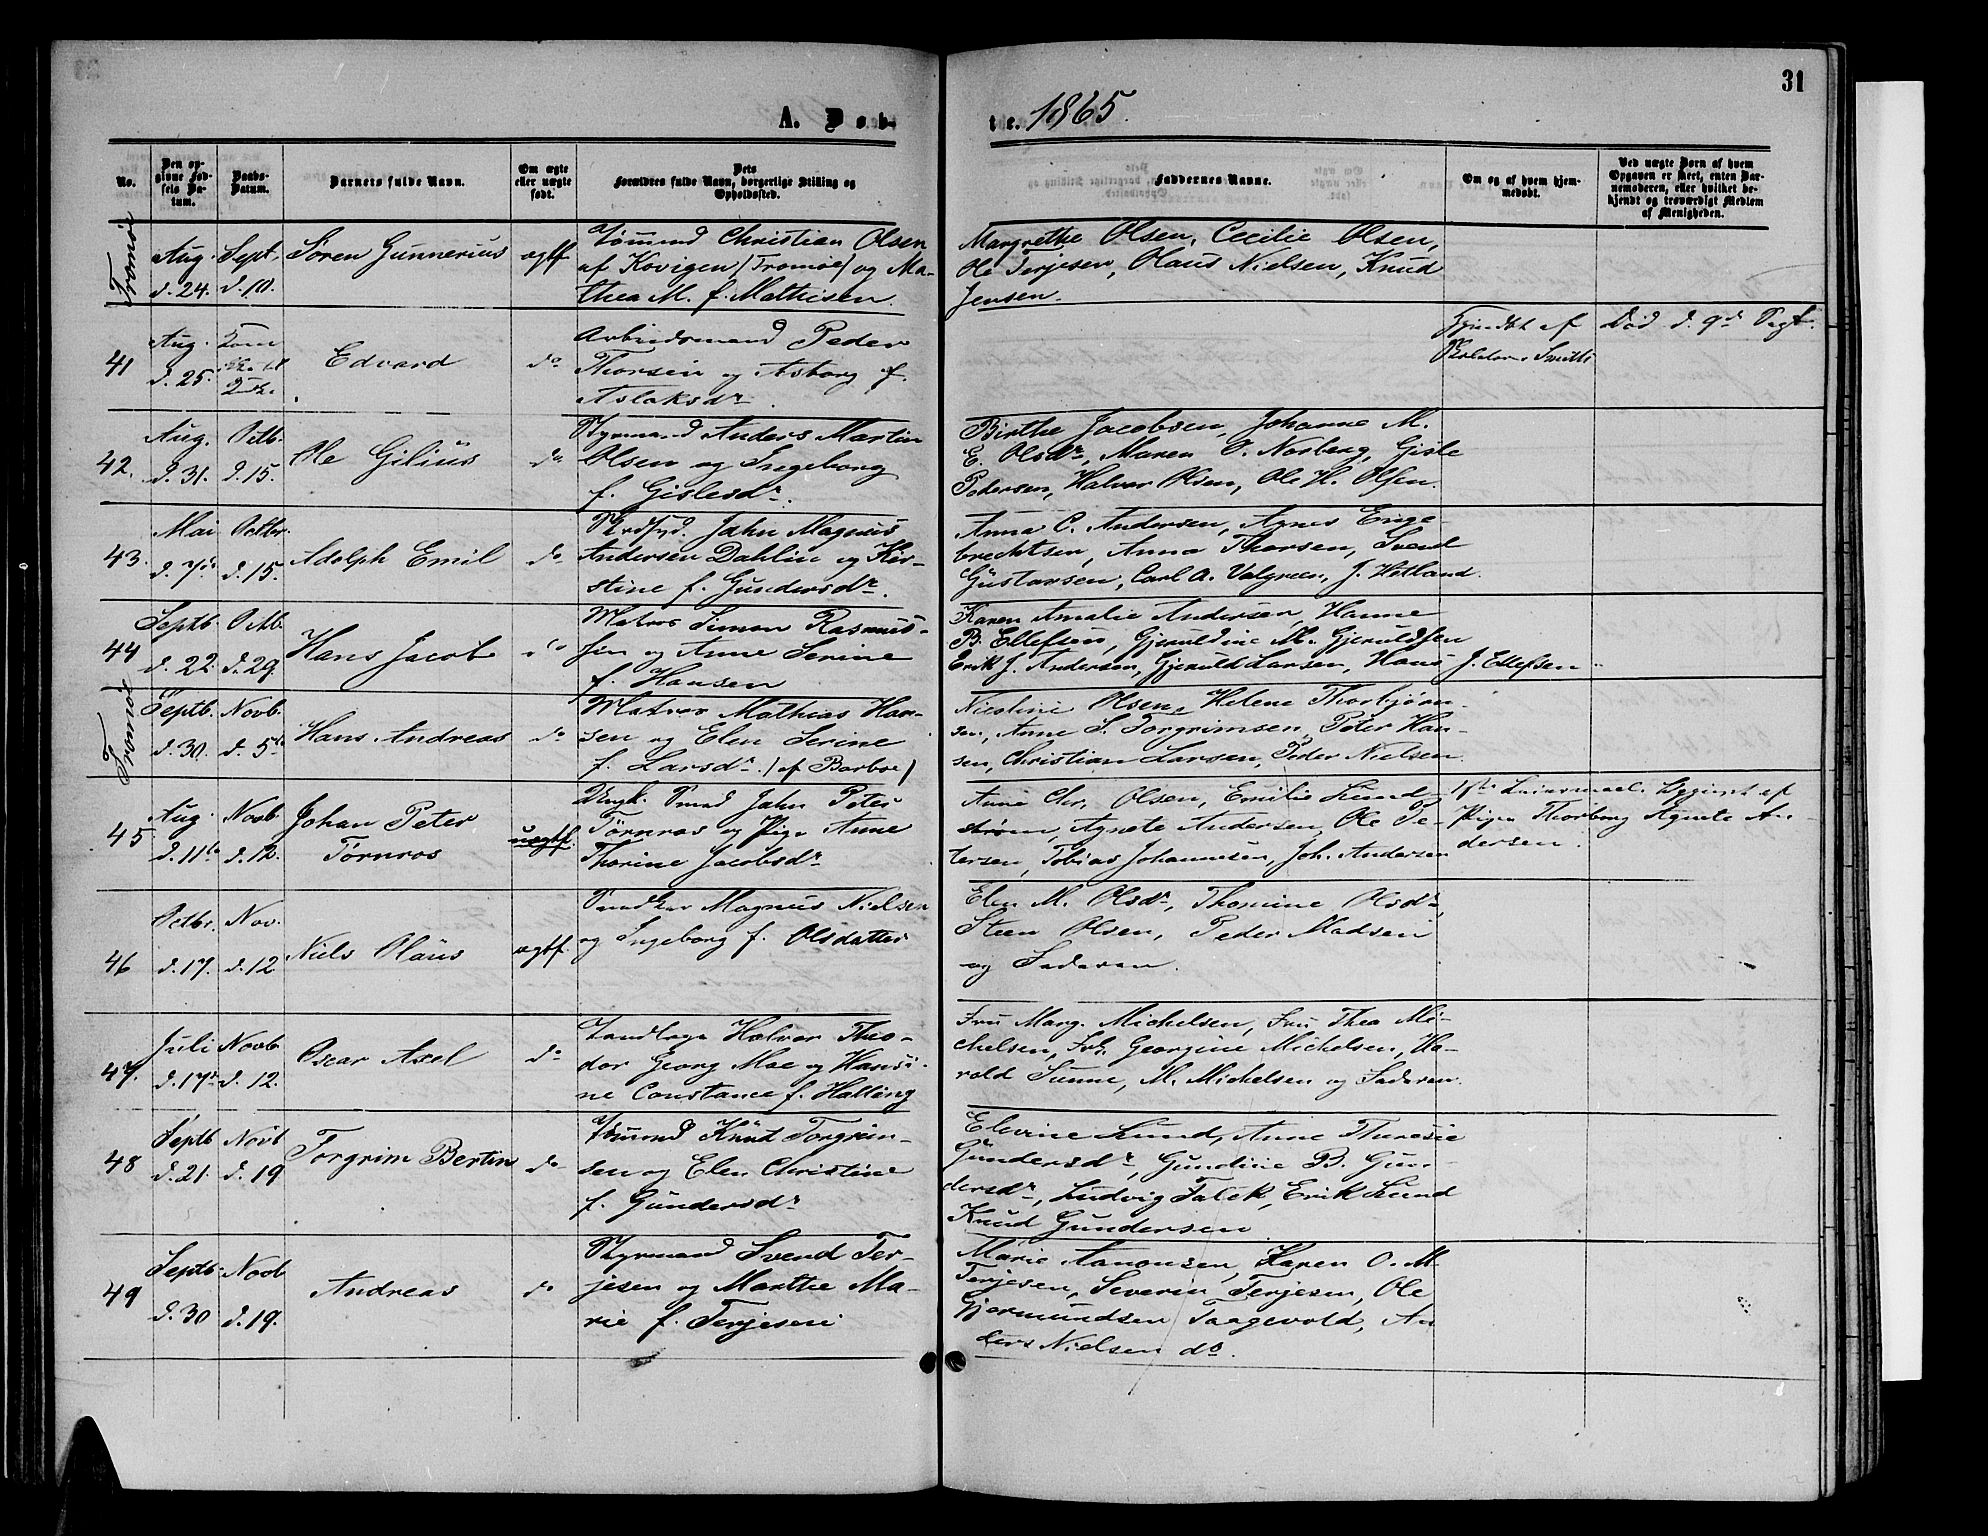 31
A. Døb-
te. 1865.
No.
Den op-
givne Fød-
sels Da-
tum.
Daabs-
Datum.
Barnets fulde Navn.
Om ægte
eller uægte
født.
Dets
Forældres fulde Navn, borgerlige Stilling og
Opholdssted.
Faddernes Navne.
Om og af hvem hjem-
medøbt.
Ved uægte Børn af hvem
Opgaven er skeet, enten Bar-
nemoderen, eller hvilket be-
kjendt og troværdigt Medlem
af Menigheden.
Tromøe
Aug.
d. 24.
Sept.
d. 10.
Søren Gunnerius
ægtf.
Sømand Christian Olsen
af Kovigen (Tromøe) og Ma-
thea M. f. Mathisen.
Margrethe Olsen, Cecilie Olsen,
Ole Terjesen, Olaus Nielsen, Knud
Jensen.
41
Aug.
d. 25.
Edvard
do
Arbeidsmand Peder
Thorsen og Asborg f.
Aslaksdr.
Hjemdøbt af
Død d. 9d Sept.
42.
Aug.
d. 31.
Octb.
d. 15.
Ole Gilius
do
Styrmand Anders Martin
Olsen og Ingeborg
f. Gislesdr.
Birthe Jacobsen, Johanne M.
E. Olsdr, Maren O. Norberg, Gisle
Pedersen, Halvor Olsen, Ole H. Olsen.
43.
Mai
d. 7de
Octbr.
d. 15.
Adolph Emil
do
John Magnus
Andersen Dahlin og Kir-
stine f. Gundersdr.
Anna C. Andersen, Agnes Enge-
brechtsen, Anna Thorsen, Svend
Gustavsen, Carl A. Valgreen, J. Hetland.
44
Septb.
d. 22.
Octb.
d. 29.
Hans Jacob
do
Matros Simon Rasmus-
sen og Anne Serine
f. Hansen
Karen Amalie Andersen, Hanne
B. Ellefsen, Gjeruldine M. Gjeruldsen
Erik J. Andersen, Gjeruld Larsen, Hans J. Ellefsen
Tromøe
Septb.
d. 30.
Novb.
d. 5te
Hans Andreas
do
Matros Mathias Han-
sen og Elen Serine
f. Larsdr. (af Barboe)
Nicoline Olsen, Helene Thorbjørn-
sen, Anne S. Torgrimsen, Peter Han-
sen, Christian Larsen, Peder Nielsen.
45
Aug.
d. 11te
Novb.
d. 12.
Johan Peter
Törnros
uægtf.
Ungk. Smed John Peter
Törnros og Pige Anne
Thorine Jacobsdr
Anne Chr. Olsen, Emilie Lund-
strøm, Agnete Andersen, Ole Pe-
tersen, Tobias Johannesen, Joh. Andersen
1ste Leiermaal. Opgivet af
Pige Thorborg Agnete An-
dersen.
46
Octbr.
d. 17.
Nov.
d. 12
Niels Olaus
ægtf.
Magnus Nielsen
og Ingeborg f. Olsdatter
Elen M. Olsdr, Thomine Olsdr,
Steen Olsen, Peder Madsen
og Faderen.
47.
Juli
d. 17de
Novb.
d. 12.
Oscar Axel
do
Tandlæge Halvor Theo-
dor Georg Moe og Hansi-
ne Constance f. Halling
Fru Marg. Michelsen, Fru Thea Mi-
chelsen, Frk. Georgine Michelsen, Ha-
rold Sunne, M. Michelsen og Faderen.
48
Septb
d. 21.
Novb
d. 19
Torgrim Bertin
do
Sømand Knud Torgrim-
sen og Elen Christine
f. Gundersdr
Elevine Lund, Anne Theresie
Gundersdr, Gundine B. Gun-
dersdr, Ludvig Falck, Erik Lund
Knud Gundersen
49
Septb.
d. 30
Novb
d. 19.
Andreas
do
Styrmand Svend Ter-
jesen og Marthe Ma-
rie f. Terjesen
Marie Aanonsen, Karen O. M.
Terjesen, Severin Terjesen, Ole
Gjermundsen Taagevold, An-
ders Nielsen do.